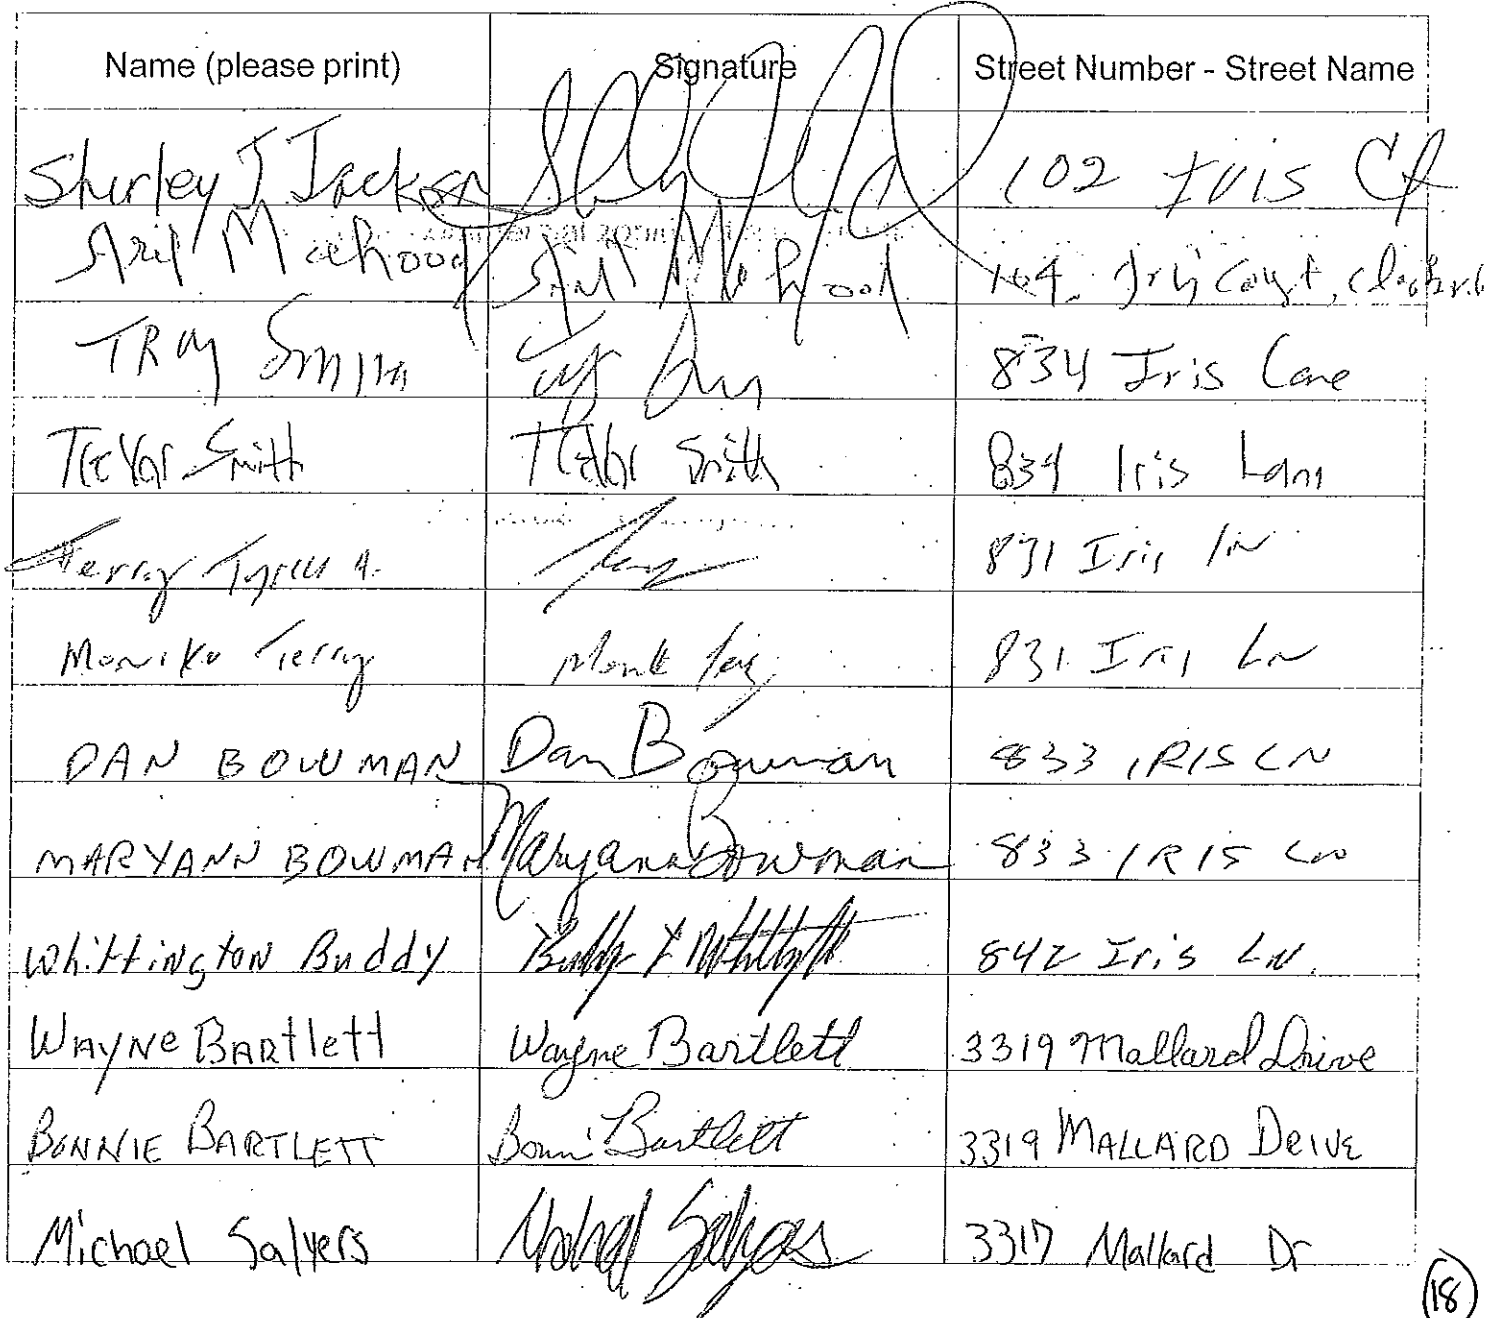 Name (please print) Signature Street Number - Street Name
Shurley J Jackson 102 Iris Ct
Mahood Mahood 104
TROY Smith 834 Iris Lane
Trevor Smith Trevor Smith 834 Iris Lane
Terry 831 Iris LN
Terry 831 Iris LN
DAN BOWMAN Dan Bowman 833 IRIS LN
MARYANN BOWMAN Maryann Bowman 833 IRIS LN
Whittington Buddy Buddy 842 Iris LN.
WAYNE BARtlett Wayne Bartlett 3319 Mallard Drive
BONNIE BARTLETT Bonni Bartlett 3319 MALLARD DRIVE
Michael Salyers Michael Salyers 3317 Mallard Dr
18